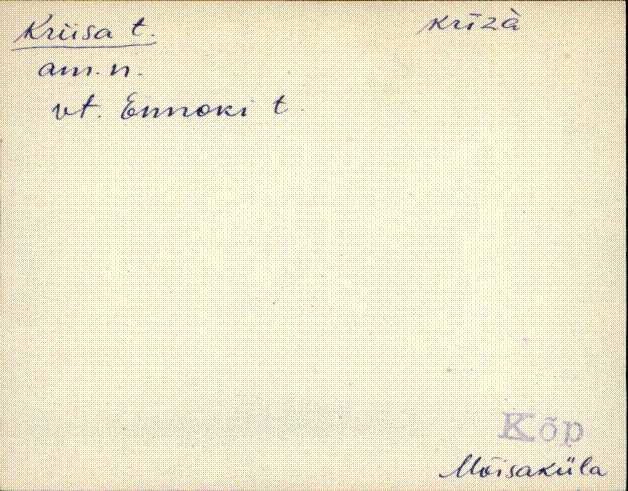 Kriisa t. krīzà
am. n.
vt. Ennoki t.
Kõp
Mõisaküla